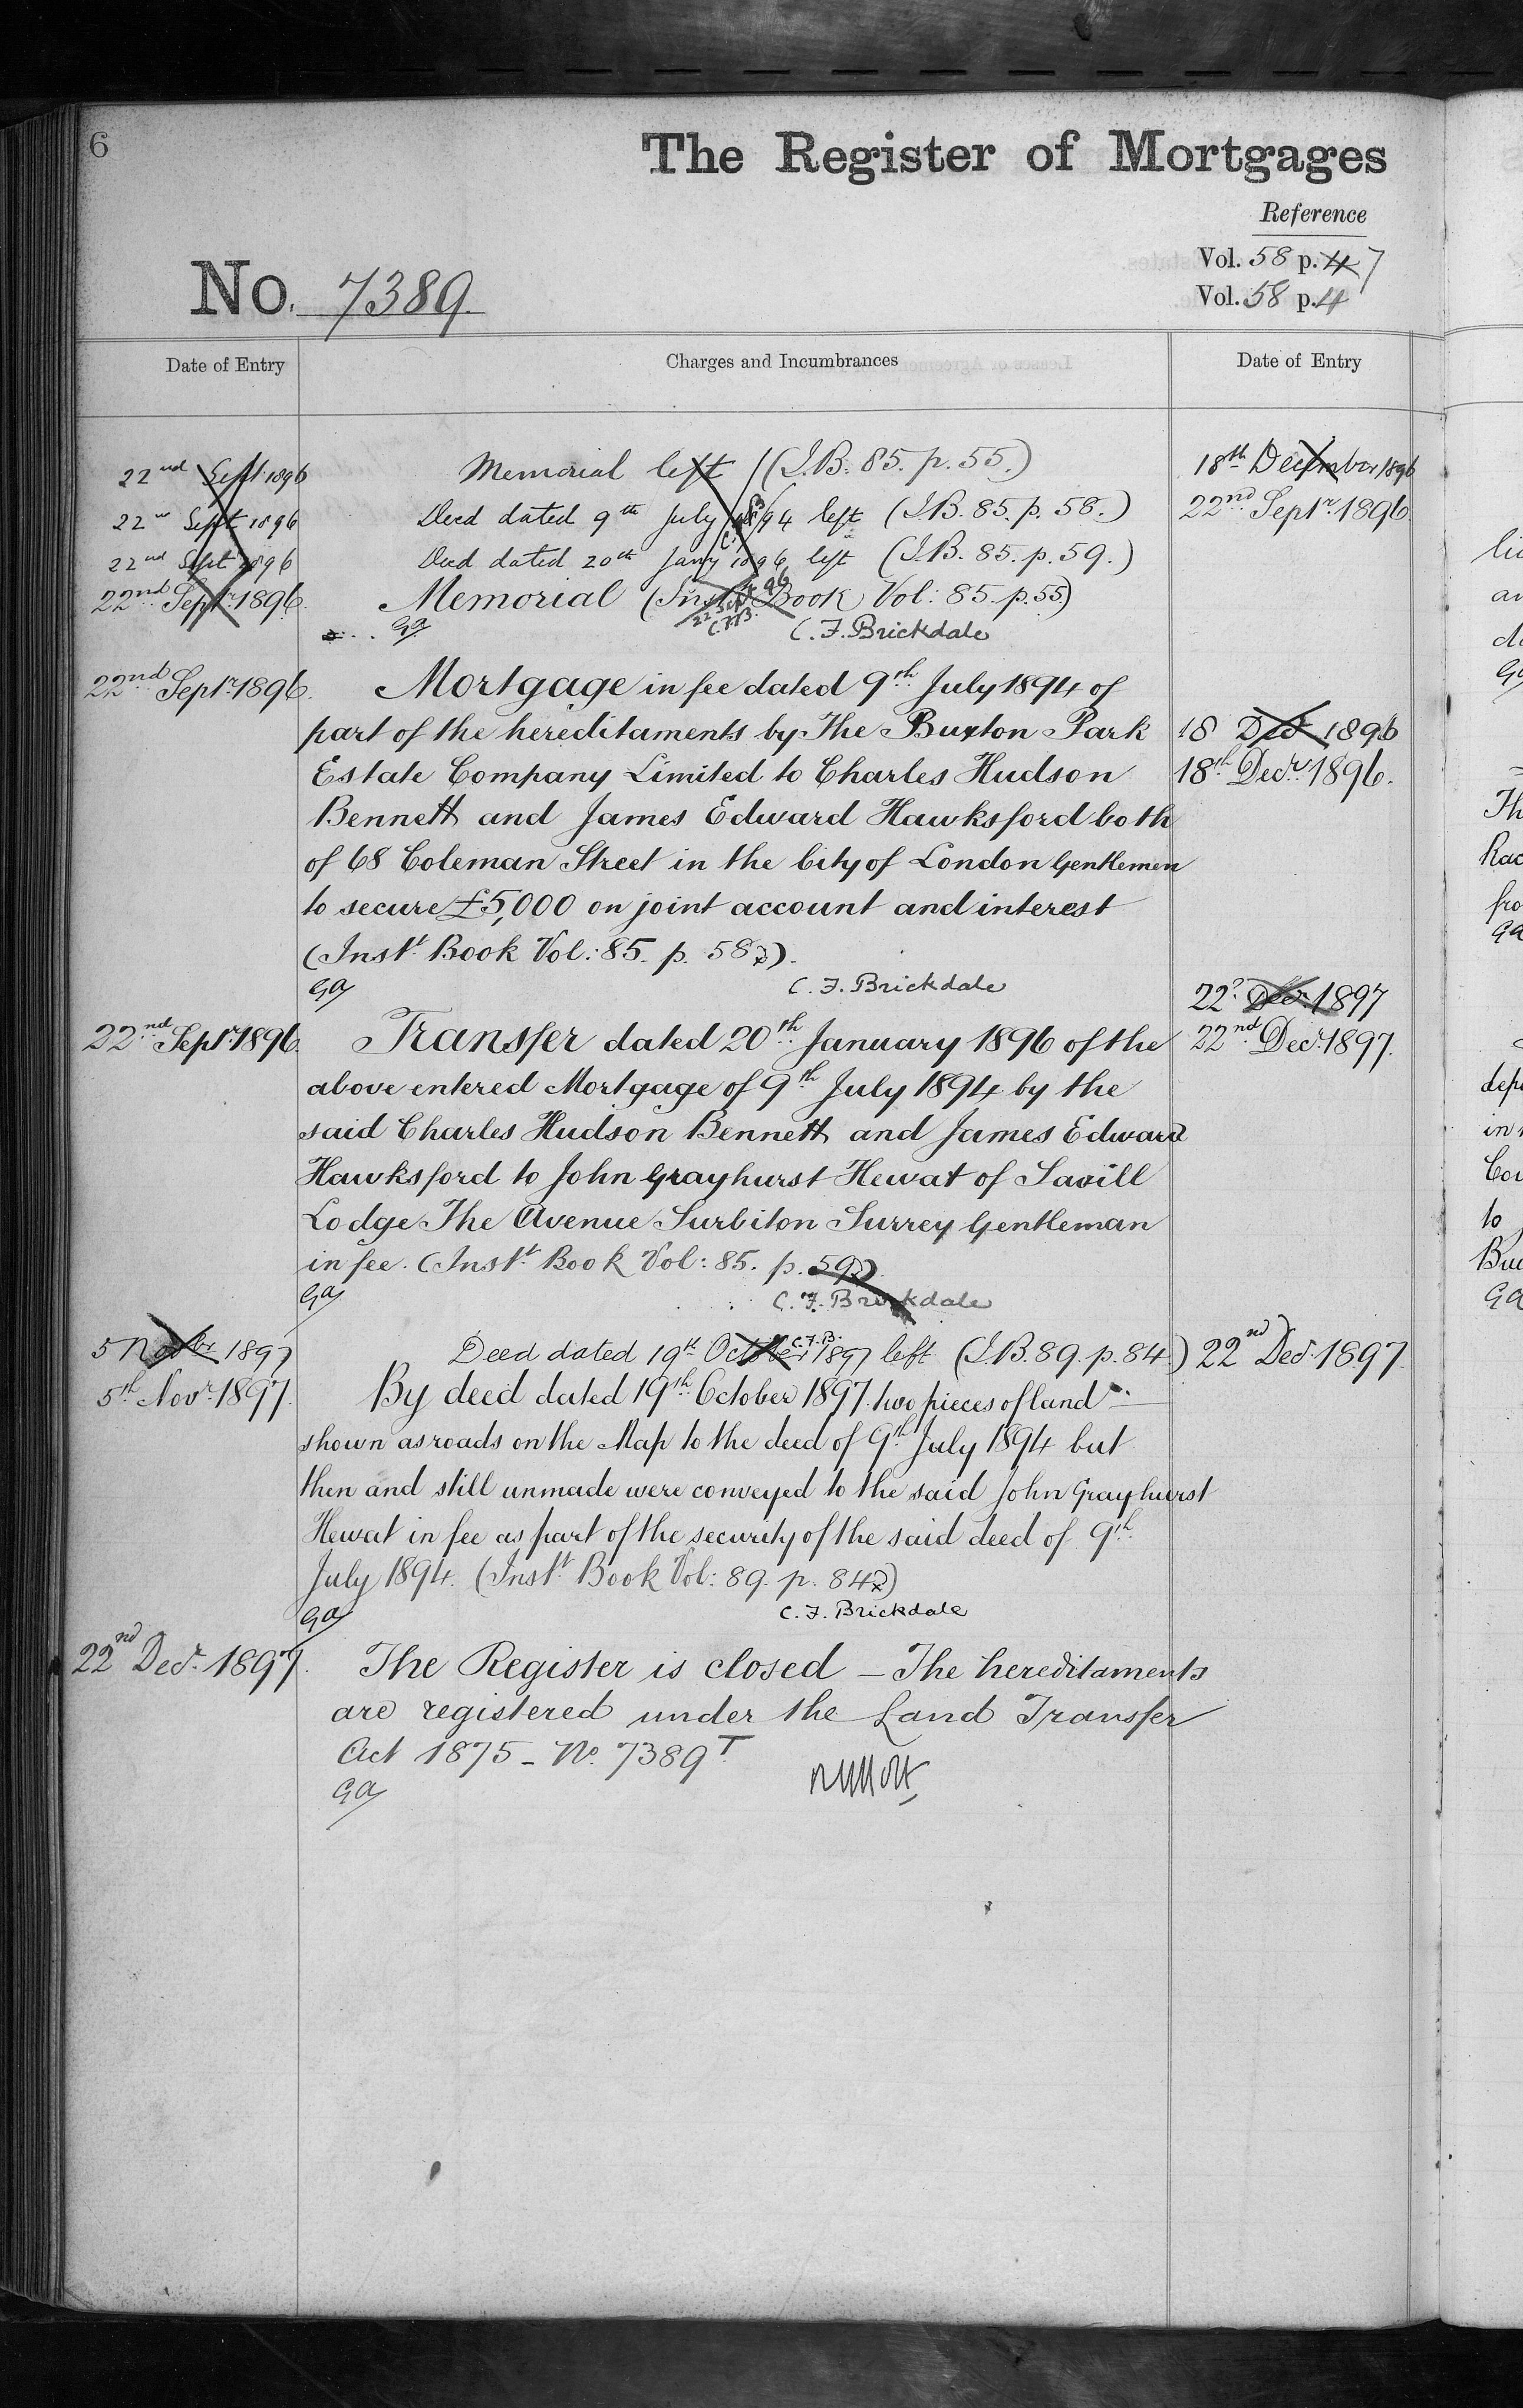 6
The Register of Mortgages
Reference
Vol. 58 p. 4 7
Vol. 58 p. 4
No. 7389.
Date of Entry
Charges and Incumbrances
Date of Entry
22nd Sept 1896
Memorial left (I.B. 85. p. 55.)
18th December 1896
22nd Sept 1896
Deed dated 9th July 1894 left (I.B. 85. p. 58.)
22nd Septr. 1896
22nd Sept 1896
Deed dated 20th Jany 1896 left (I.B. 85. p. 59.)
22nd Septr. 1896.
Memorial (Inst Book Vol: 85. p. 55)
22 Sept 96
C.F.B.
Ga
C. F. Brickdale
22nd Septr. 1896.
Mortgage in fee dated 9th July 1894 of
part of the hereditaments by The Buxton Park
18 Decr 1896
Estate Company Limited to Charles Hudson
18th Decr. 1896.
Bennett and James Edward Hawksford both
of 68 Coleman Street in the City of London Gentlemen
to secure £5,000 on joint account and interest
(Instt. Book Vol: 85. p. 58).
Ga
C. F. Brickdale
22 Decr 1897
22nd Septr. 1896.
Transfer dated 20th January 1896 of the
22nd Decr. 1897.
above entered Mortgage of 9th July 1894 by the
said Charles Hudson Bennett and James Edward
Hawksford to John Grayhurst Hewat of Savill
Lodge The Avenue Surbiton Surrey Gentleman
in fee. (Instt. Book Vol: 85. p. 59)
Ga
C. F. Brickdale
5 Novbr 1897
Deed dated 19th October 1897 left (I.B. 89. p. 84.)
C.F.B.
22nd Decr. 1897.
5th Novr. 1897.
By deed dated 19th October 1897 two pieces of land
shown as roads on the Map to the deed of 9th July 1894 but
then and still unmade were conveyed to the said John Grayhurst
Hewat in fee as part of the security of the said deed of 9th
July 1894. (Instt. Book Vol: 89. p. 84)
Ga
C. F. Brickdale
22nd Decr. 1897.
The Register is closed – The hereditaments
are registered under the Land Transfer
Act 1875 – No. 7389T
Ga